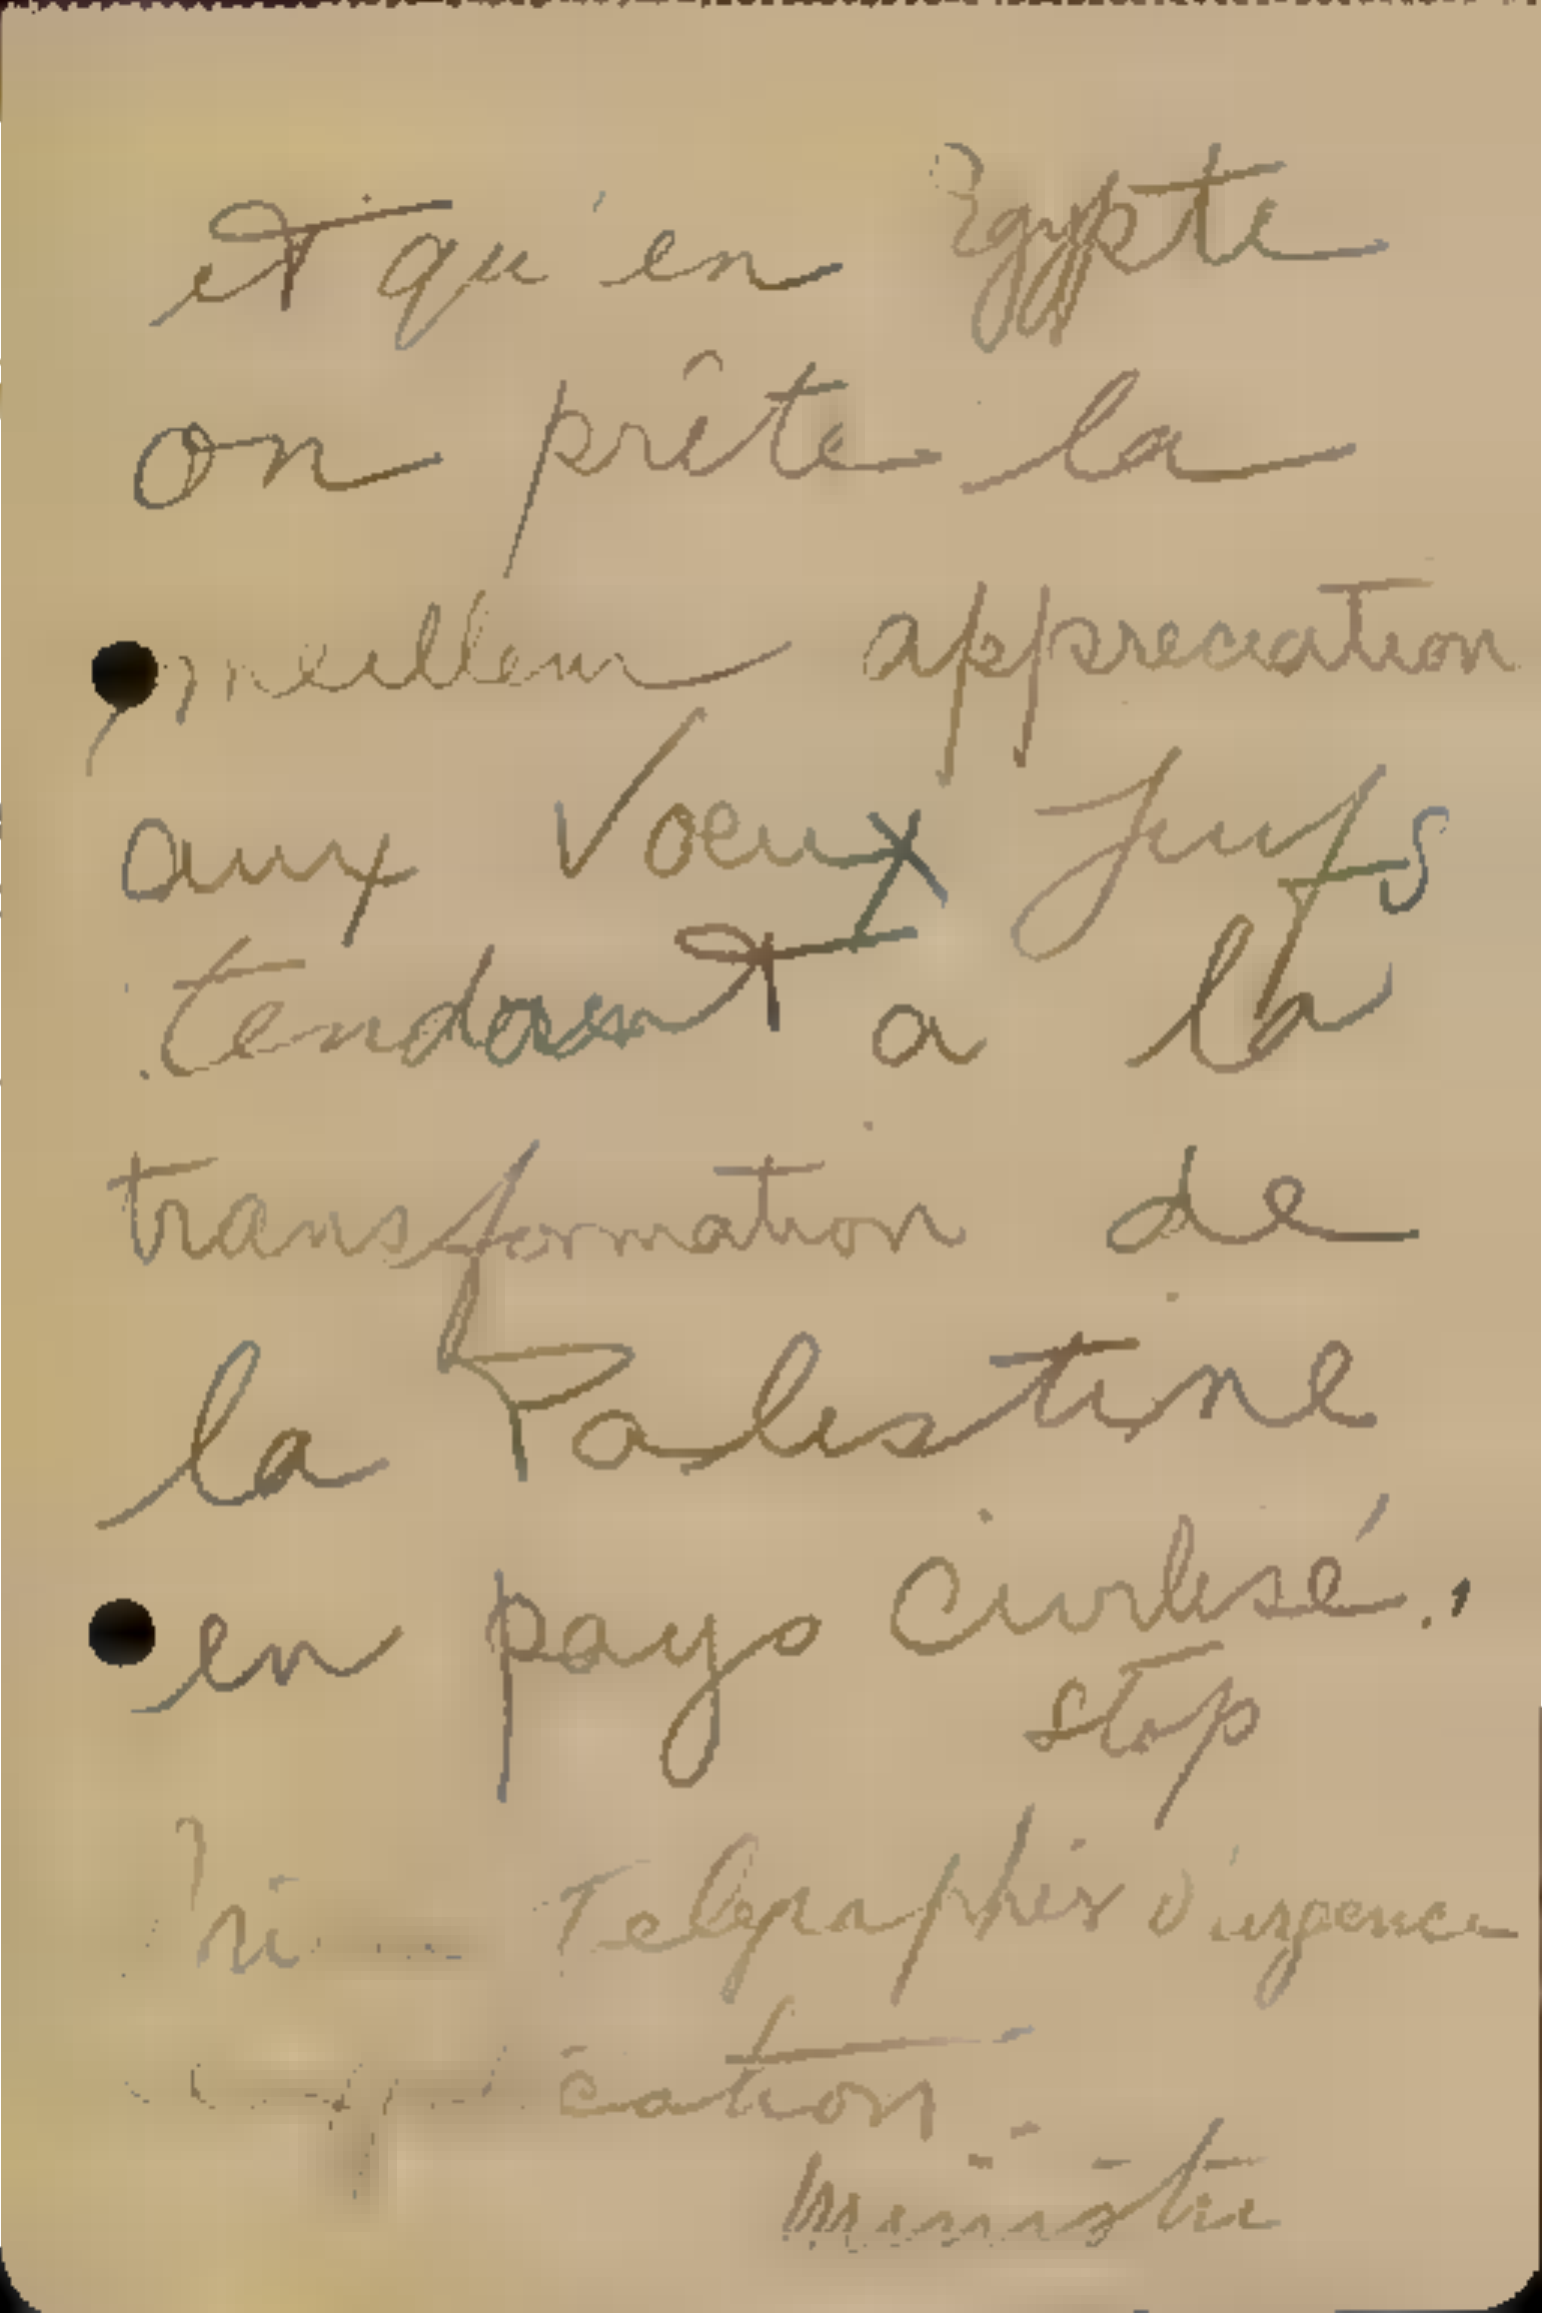 et qu'en Egypte
on prête la
meilleur appreciation
aux Voeux Juifs
tendant a la
transformation de
la Palestine
en pays civilisé."
stop
Telegraphier d'urgence
Ministre